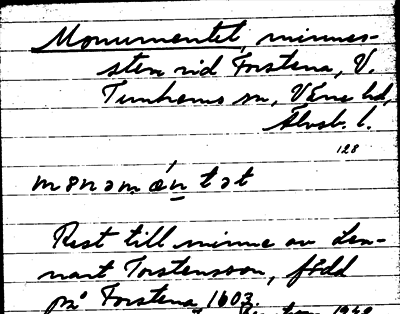 Monumentet, minnes-
sten vid Forstena, V.
Tunhems sn, Väne hd,
Älvsb. l.
128
Rest till minne av Len-
nart Torstensson, född
på Forstena 1603.